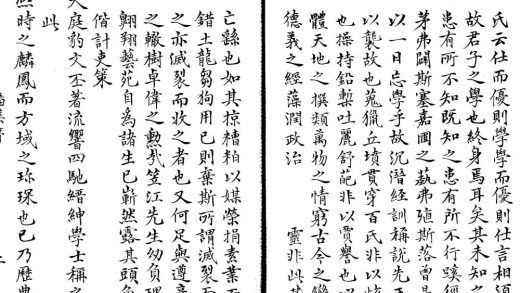 氏云仕而優則學學而優則仕言相須
故君子之學也終身焉耳矣其未知之
患有所不知既知之患有所不行蹊徑
茅弗闢斯塞嘉圃之蓺弗殖斯落曾是
以一日忘學乎故沉潛經訓稱說先
以襲故也蒐獵丘墳貫穿百氏非以
也操持鉛槧吐麗舒葩非以賈譽也
體天地之撰類萬物之情窮古今之變
德義之經藻潤政治 靈非此其
亡繇也如其掠糟粕以媒榮捐素業
錯土龍芻狗用已則棄斯所謂滅裂而
之亦滅裂而收之者也又何足與遵
之轍樹卓偉之勳哉笠江先生幼負
翱翔藝苑自為諸生已嶄然露其頭角
偕計吏策
此
大庭豹文丕著流響四馳縉紳學士稱之
熙時之麟鳳而方域之珍琛也已乃歷典